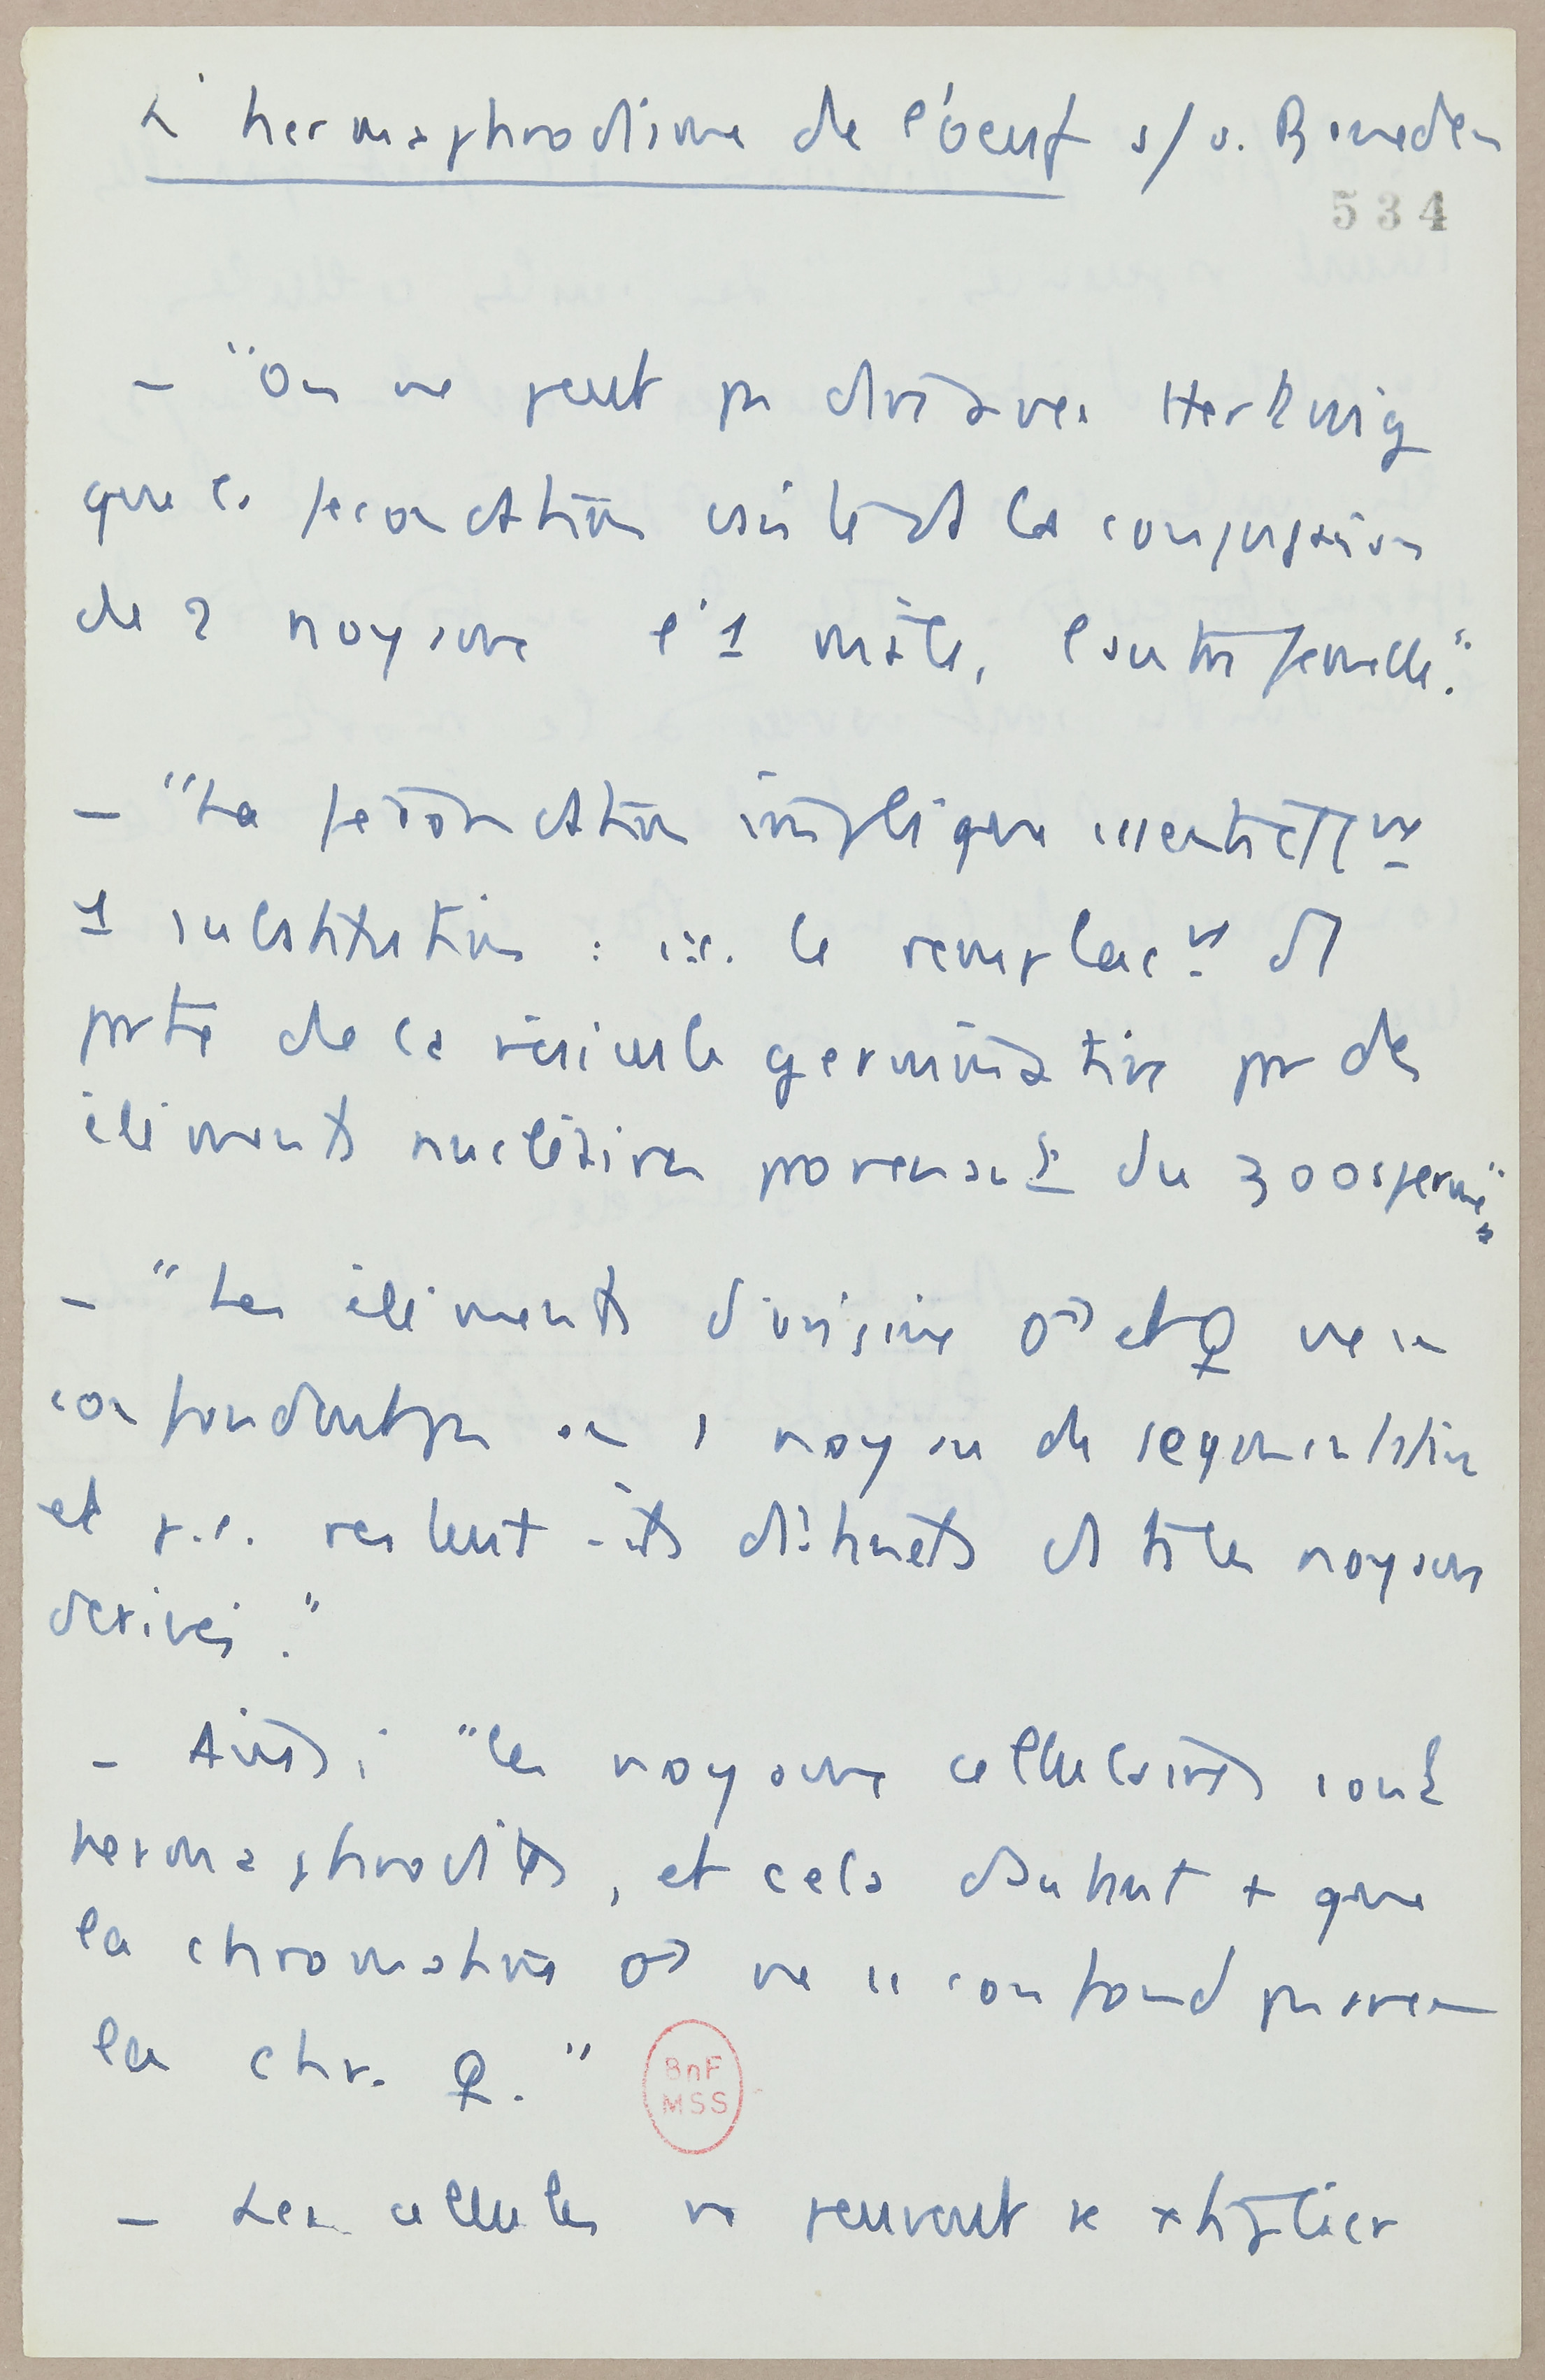 L'hermaphrodisme de l'oeuf s/ v. Beneden
534
- "On ne peut pas dire avec Hertwig
que la fécondation consiste ds la conjugaison
de 2 noyaux l'1 mâle, l'autre femelle."
- "La fécondation implique essentiellt
1 substitution : i.e. le remplact d
partie de la vésicule germinative par des
éléments nucléaires provenant du zoosperme".
- "Les éléments ♂ et ♀ ne se
confondent pas en 1 noyau de segmentation
et p.e. restent distincts ds ts les noyaux
dérivés."
- Ainsi "les noyaux cellulaires sont
hermaphrodites, et cela d'autant + que
la chromatine ♂ ne se confond pas avec
la chr. ♀."
BnF
MSS
- Les cellules ne peuvent se xtiplier